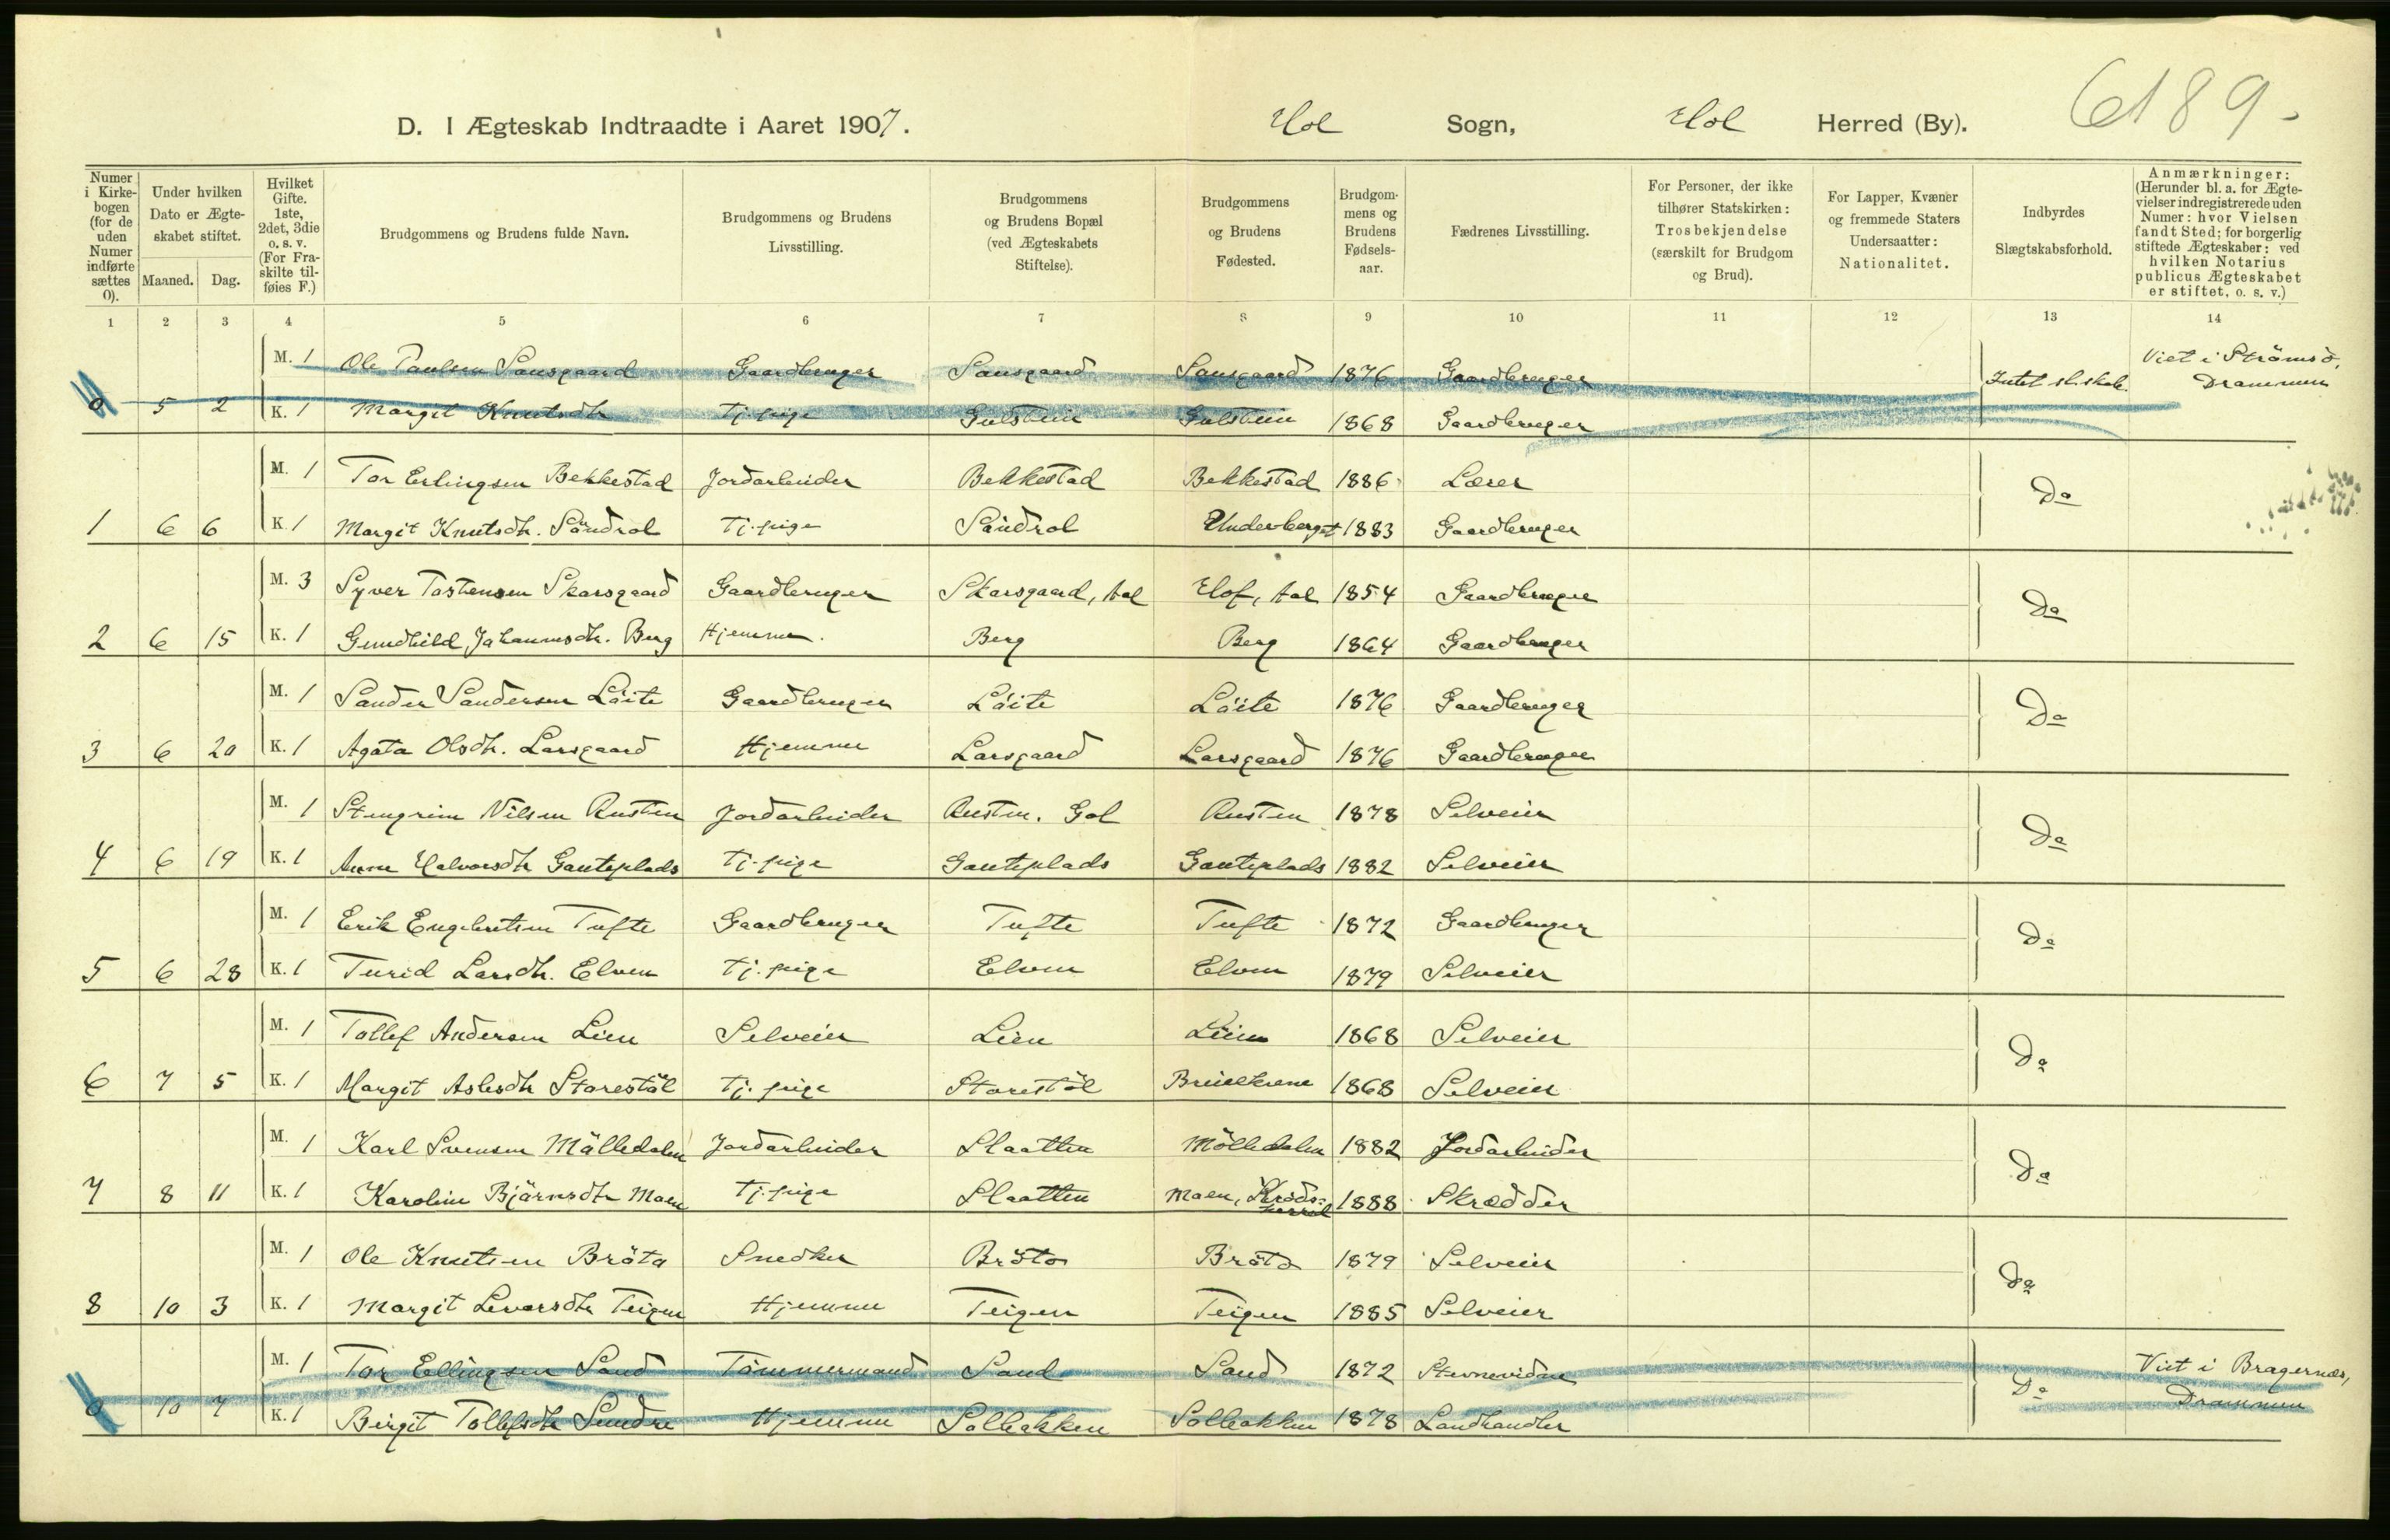 6189-
D. I Ægteskab Indtraadte i Aaret 1907. Hol Sogn, Hol Herred (By).
Numer i Kirkebogen (for de uden Numer indførte sættes 0).
Under hvilken Dato er Ægteskabet stiftet.
Maaned. Dag.
Hvilket Gifte. 1ste, 2det, 3die o. s. v. (For Fraskilte tilføies F.)
Brudgommens og Brudens fulde Navn.
Brudgommens og Brudens Livsstilling.
Brudgommens og Brudens Bopæl (ved Ægteskabets Stiftelse).
Brudgommens og Brudens Fødested.
Brudgommens og Brudens Fødselsaar.
Fædrenes Livsstilling.
For Personer, der ikke tilhører Statskirken: Trosbekjendelse (særskilt for Brudgom og Brud).
For Lapper, Kvæner og fremmede Staters Undersaatter: Nationalitet.
Indbyrdes Slægtskabsforhold.
Anmærkninger: (Herunder bl. a. for Ægtevielser indregistrerede uden Numer: hvor Vielsen fandt Sted; for borgerlig stiftede Ægteskaber: ved hvilken Notarius publicus Ægteskabet er stiftet, o. s. v.)
1 2 3 4 5 6 7 8 9 10 11 12 13 14
M. 1 Ole Paulsen Sausgaard Gaardbruger Sausgaard Sausgaard 1876 Gaardbruger Intet sl.skab. Viet i Strömsö, Drammen
0 5 2 K. 1 Margit Knutsdtr Tj.pige Gulstein Gulstein 1868 Gaardbruger
M. 1 Tor Erlingsen Bekkestad Jordarbeider Bekkestad Bekkestad 1886 Lærer Do
1 6 6 K. 1 Margit Knutsdtr. Sündrol Tj.pige Sündrol Underberget 1883 Gaardbruger
M. 3 Syver Tostensen Skarsgaard Gaardbruger Skarsgaard, Aal Hof, Aal 1854 Gaardbruger Do
2 6 15 K. 1 Gundhild Johannesdtr. Berg Hjemme. Berg Berg 1864 Gaardbruger
M. 1 Sander Sandersen Löite Gaardbruger Löite Löite 1876 Gaardbruger Do
3 6 20 K. 1 Agata Olsdtr. Larsgaard Hjemme Larsgaard Larsgaard 1876 Gaardbruger
M. 1 Stengrim Nilsen Rusten Jordarbeider Rusten. Gol Rusten 1878 Selveier Do
4 6 19 K. 1 Anne Halvorsdtr Gauteplads Tj.pige Gauteplads Gauteplads 1882 Selveier
M. 1 Erik Engebretsen Tufte Gaardbruger Tufte Tufte 1872 Gaardbruger Do
5 6 28 K. 1 Turid Larsdtr. Elven Tj.pige Elven Elven 1879 Selveier
M. 1 Tollef Andersen Lien Selveier Lien Lien 1868 Selveier Do
6 7 5 K. 1 Margit Aslesdtr Storestöl Tj.pige Storestöl 1868 Selveier
M. 1 Karl Svensen Mölledalen Jordarbeider Slaatten Mölledalen 1882 Jordarbeider Do
7 8 11 K. 1 Karoline Björnsdtr Moen Tj.pige Slaatten Moen, Kröds- 1888 Skrædder
M. 1 Ole Knutsen Bröto Snedker Bröto Bröto 1879 Selveier Do
8 10 3 K. 1 Margit Levorsdtr Teigen Hjemme Teigen Teigen 1885 Selveier
M. 1 Tor Ellingsen Sand Tömmermand Sand Sand 1872 Stevnevidne Do Viet i Bragernæs, Drammen
0 10 7 K. 1 Birgit Tollefsdtr Sundre Hjemme Solbakken Solbakken 1878 Landhandler